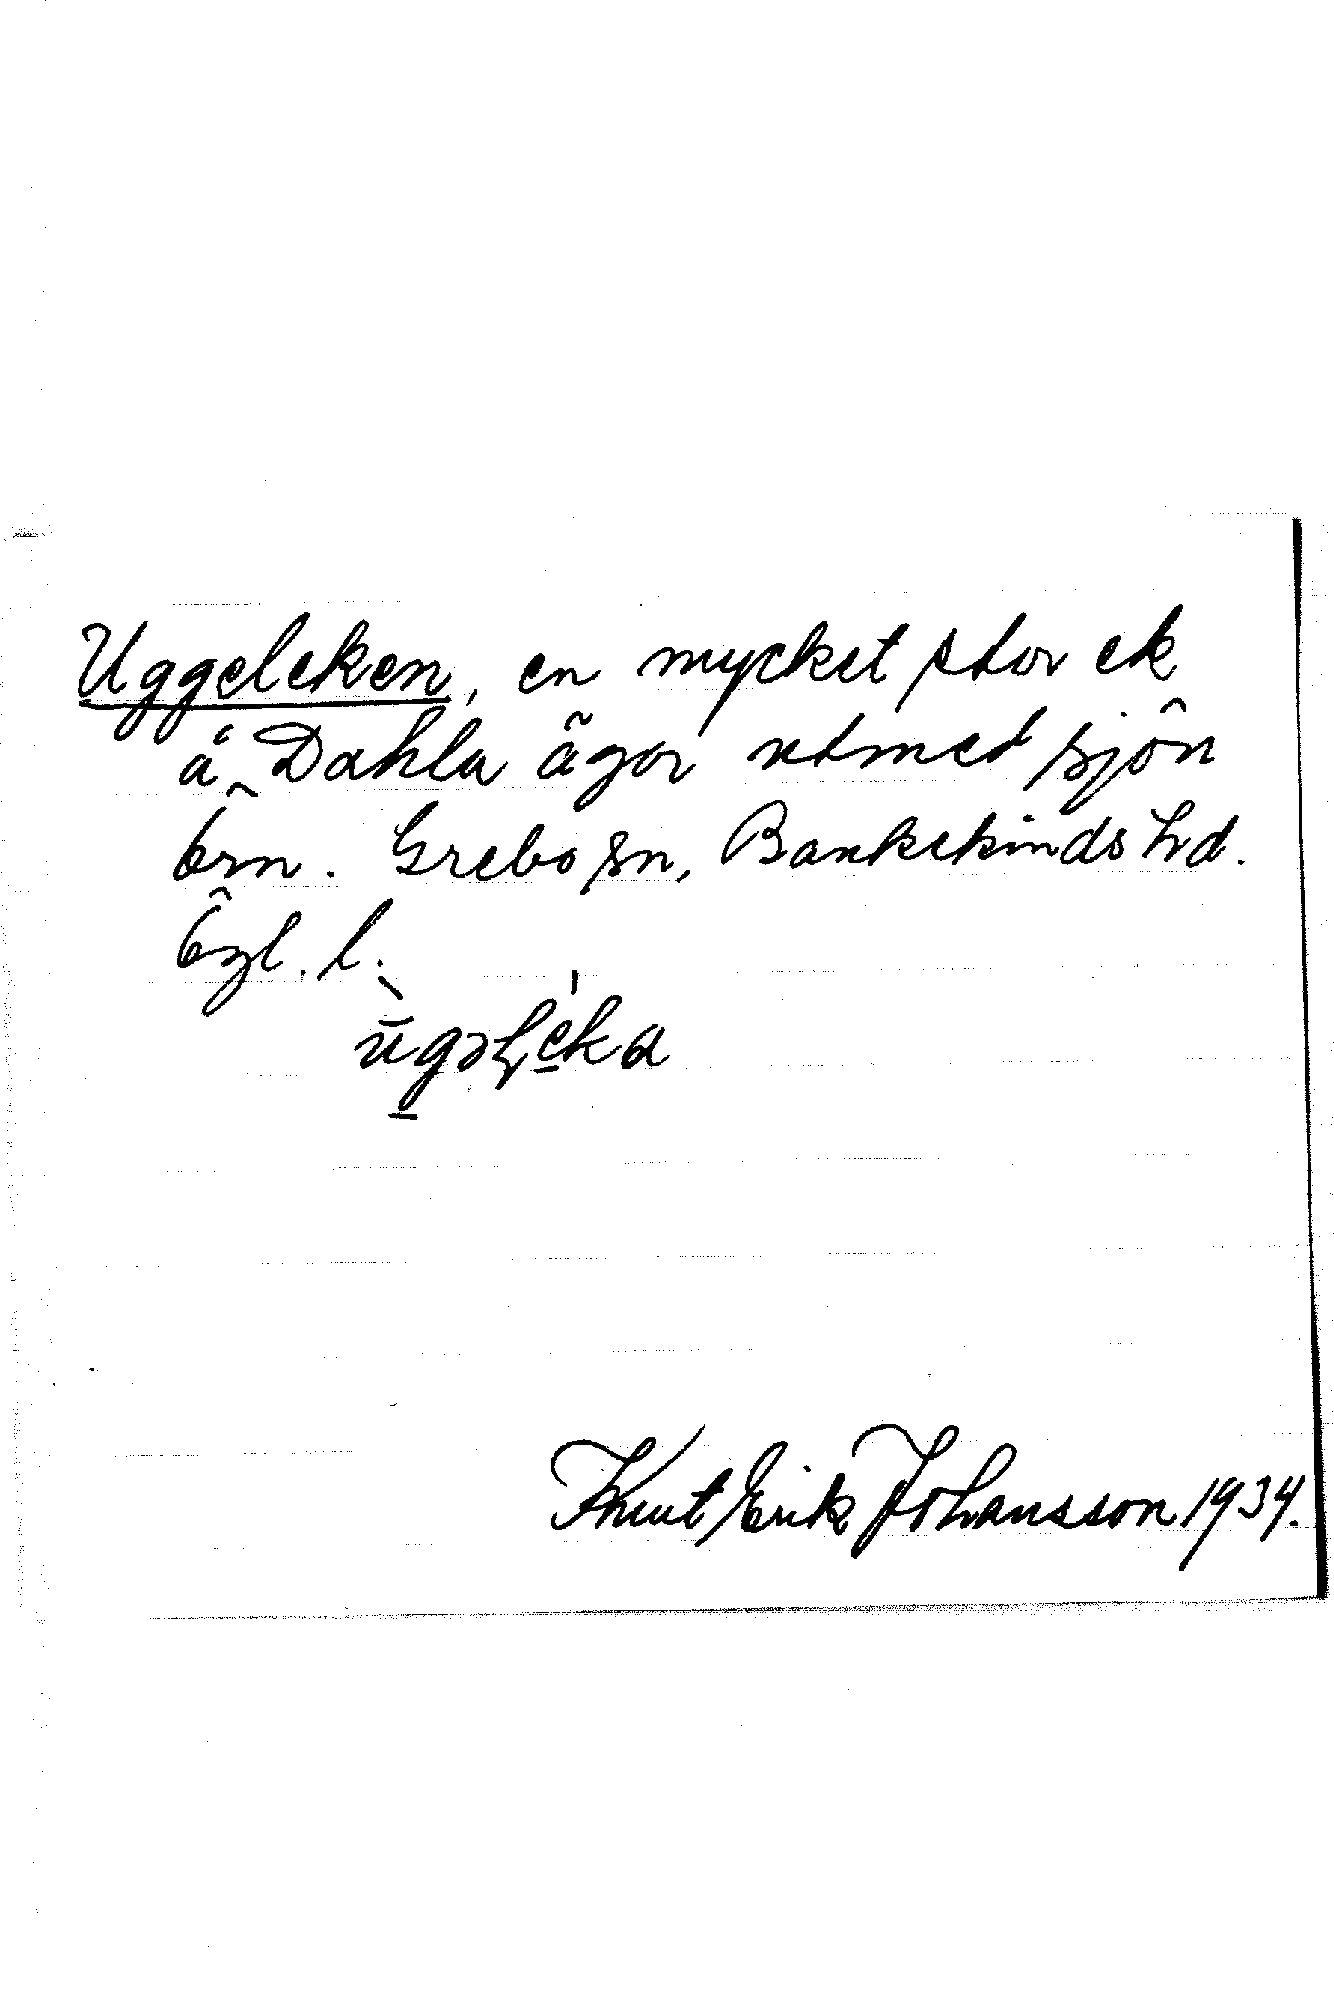 Uggeleken, en mycket stor ek
å Dahla ägor utmed sjön
Örn. Grebo sn, Bankekinds hd.
Ögl. l.
ùgəlèka
Knut Erik Johansson 1934.